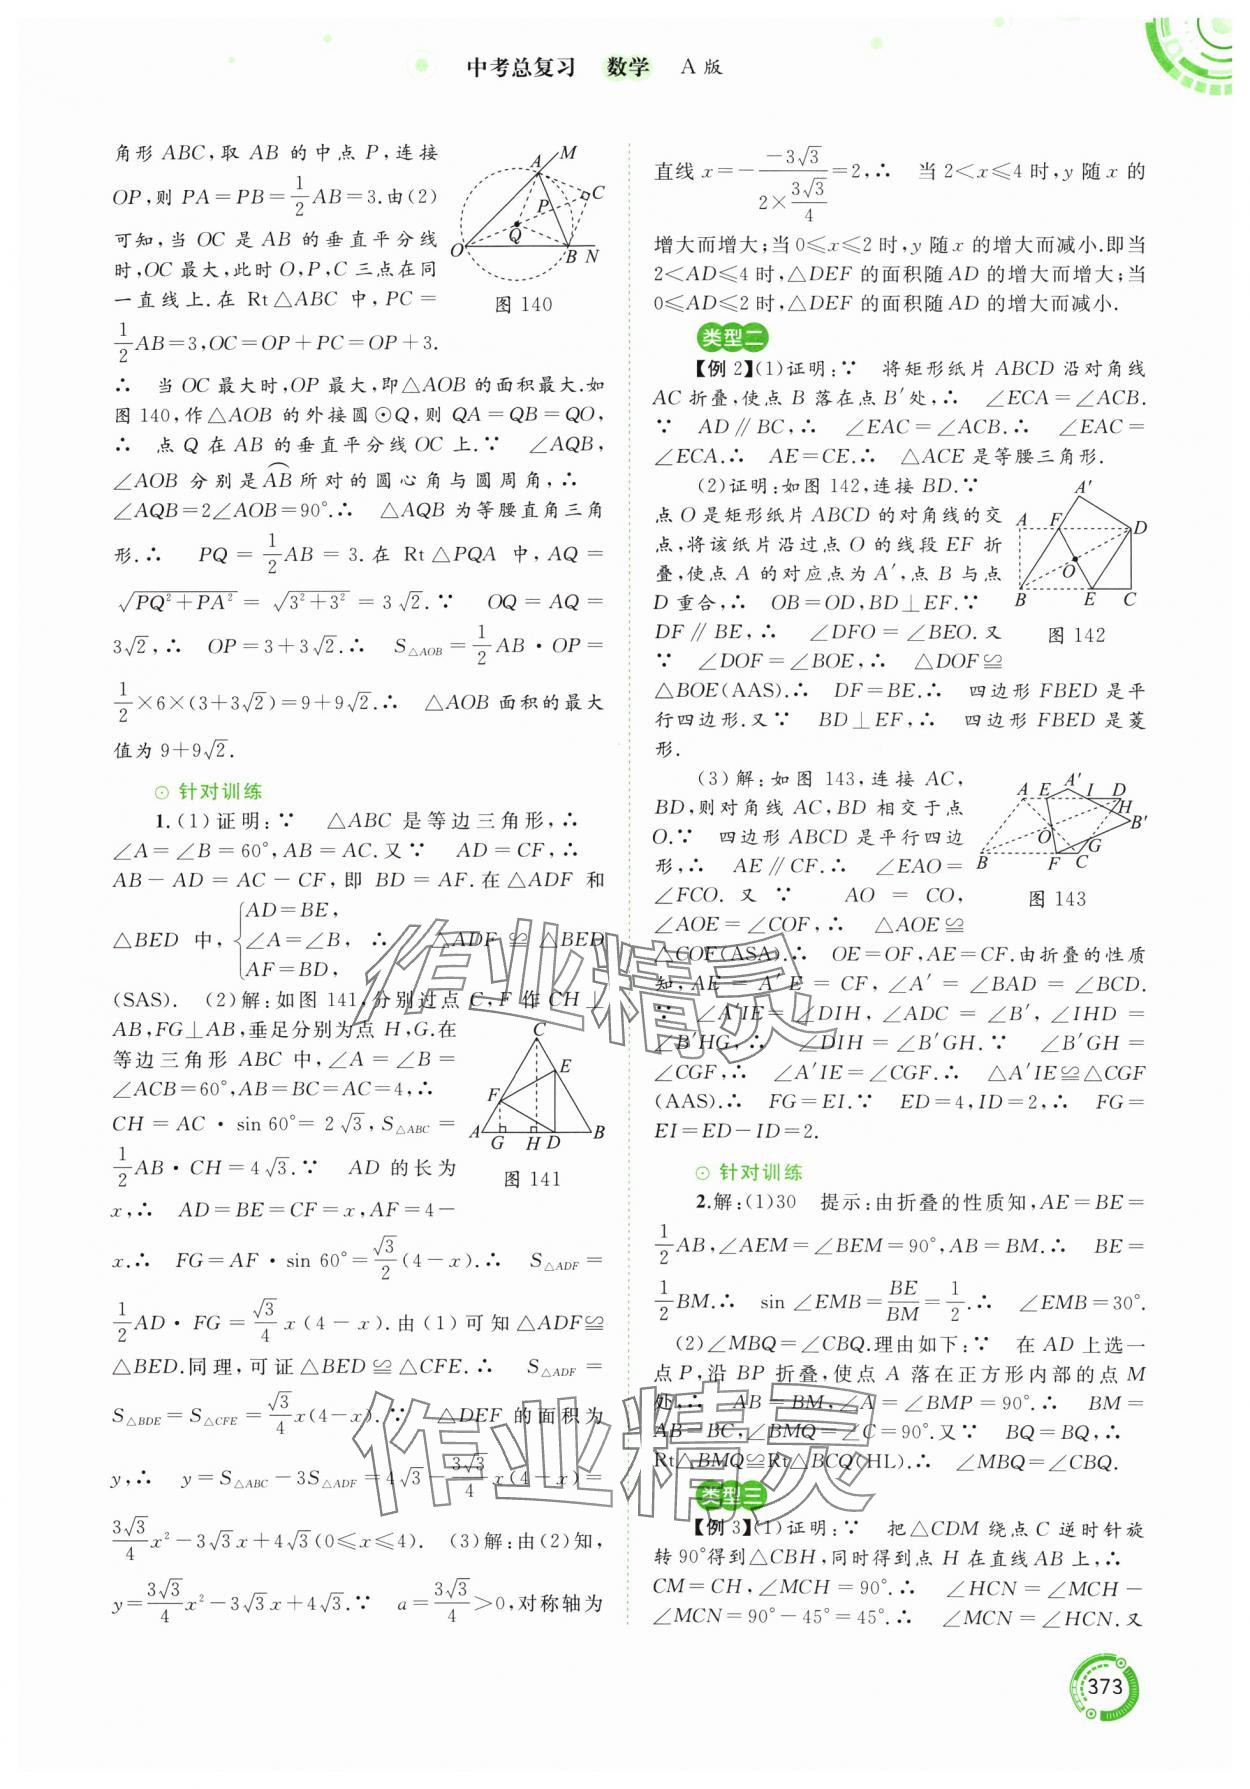 中考总复习 数学 A版
角形 ABC,取 AB 的中点 P,连接
OP,则 PA=PB=\frac{1}{2}AB=3.由(2)
可知,当 OC 是 AB 的垂直平分线
时,OC 最大,此时 O,P,C 三点在同
一直线上.在 Rt△ABC 中,PC=
\frac{1}{2}AB=3,OC=OP+PC=OP+3.
M
A
C
P
Q
O
B N
图 140
∴ 当 OC 最大时,OP 最大,即△AOB 的面积最大.如
图 140,作△AOB 的外接圆⊙Q,则 QA=QB=QO,
∴ 点 Q 在 AB 的垂直平分线 OC 上.∵ ∠AQB,
∠AOB 分别是\overset{\frown}{AB}所对的圆心角与圆周角,∴
∠AQB=2∠AOB=90°.∴ △AQB 为等腰直角三角
形.∴ PQ=\frac{1}{2}AB=3.在 Rt△PQA 中,AQ=
\sqrt{PQ²+PA²}=\sqrt{3²+3²}=3√2.∵ OQ=AQ=
3√2,∴ OP=3+3√2.∴ S△AOB=\frac{1}{2}AB·OP=
\frac{1}{2}×6×(3+3√2)=9+9√2.∴ △AOB 面积的最大
值为 9+9√2.
针对训练
1.(1)证明:∵ △ABC 是等边三角形,∴
∠A=∠B=60°,AB=AC.又∵ AD=CF,∴
AB-AD=AC-CF,即 BD=AF.在△ADF 和
△BED 中,{AD=BE, ∠A=∠B, AF=BD, ∴ △ADF≌△BED
(SAS). (2)解:如图 141,分别过点 C,F 作 CH⊥
AB,FG⊥AB,垂足分别为点 H,G.在
等边三角形 ABC 中,∠A=∠B=
∠ACB=60°,AB=BC=AC=4,∴
CH=AC·sin 60°=2√3,S△ABC=
\frac{1}{2}AB·CH=4√3.∵ AD 的长为
x,∴ AD=BE=CF=x,AF=4-
C
E
F
A G H D B
图 141
x.∴ FG=AF·sin 60°=\frac{√3}{2}(4-x).∴ S△ADF=
\frac{1}{2}AD·FG=\frac{√3}{4}x(4-x).由(1)可知△ADF≌
△BED.同理,可证△BED≌△CFE.∴ S△ADF=
S△BDE=S△CFE=\frac{√3}{4}x(4-x).∵ △DEF 的面积为
y,∴ y=S△ABC-3S△ADF=4√3-\frac{3√3}{4}x(4-x)=
\frac{3√3}{4}x²-3√3x+4√3(0≤x≤4). (3)解:由(2)知,
y=\frac{3√3}{4}x²-3√3x+4√3.∵ a=\frac{3√3}{4}>0,对称轴为
直线 x=-\frac{-3√3}{2×\frac{3√3}{4}}=2,∴ 当 2<x≤4 时,y 随 x 的
增大而增大;当 0≤x≤2 时,y 随 x 的增大而减小.即当
2<AD≤4 时,△DEF 的面积随 AD 的增大而增大;当
0≤AD≤2 时,△DEF 的面积随 AD 的增大而减小.
类型二
【例 2】(1)证明:∵ 将矩形纸片 ABCD 沿对角线
AC 折叠,使点 B 落在点 B′处,∴ ∠ECA=∠ACB.
∵ AD∥BC,∴ ∠EAC=∠ACB.∴ ∠EAC=
∠ECA.∴ AE=CE.∴ △ACE 是等腰三角形.
(2)证明:如图 142,连接 BD.∵
点 O 是矩形纸片 ABCD 的对角线的交
点,将该纸片沿过点 O 的线段 EF 折
叠,使点 A 的对应点为 A′,点 B 与点
D 重合,∴ OB=OD,BD⊥EF.∵
DF∥BE,∴ ∠DFO=∠BEO.又
∵ ∠DOF=∠BOE,∴ △DOF≌
A′
A F D
O
B E C
图 142
△BOE(AAS).∴ DF=BE.∴ 四边形 FBED 是平
行四边形.又∵ BD⊥EF,∴ 四边形 FBED 是菱
形.
(3)解:如图 143,连接 AC,
BD,则对角线 AC,BD 相交于点
O.∵ 四边形 ABCD 是平行四边
形,∴ AE∥CF.∴ ∠EAO=
∠FCO.又∵ AO=CO,
∠AOE=∠COF,∴ △AOE≌
A E A′ I D
H
B′
O
G
B F C
图 143
△COF(ASA).∴ OE=OF,AE=CF.由折叠的性质
知,AE=A′E=CF,∠A′=∠BAD=∠BCD.
∵ ∠A′IE=∠DIH,∠ADC=∠B′,∠IHD=
∠B′HG,∴ ∠DIH=∠B′GH.∵ ∠B′GH=
∠CGF,∴ ∠A′IE=∠CGF.∴ △A′IE≌△CGF
(AAS).∴ FG=EI.∵ ED=4,ID=2,∴ FG=
EI=ED-ID=2.
针对训练
2.解:(1)30 提示:由折叠的性质知,AE=BE=
\frac{1}{2}AB,∠AEM=∠BEM=90°,AB=BM.∴ BE=
\frac{1}{2}BM.∴ sin∠EMB=\frac{BE}{BM}=\frac{1}{2}.∴ ∠EMB=30°.
(2)∠MBQ=∠CBQ.理由如下:∵ 在 AD 上选一
点 P,沿 BP 折叠,使点 A 落在正方形内部的点 M
处,∴ AB=BM,∠A=∠BMP=90°.∴ BM=
AB=BC,∠BMQ=∠C=90°.又∵ BQ=BQ,∴
Rt△BMQ≌Rt△BCQ(HL).∴ ∠MBQ=∠CBQ.
类型三
【例 3】(1)证明:∵ 把△CDM 绕点 C 逆时针旋
转 90°得到△CBH,同时得到点 H 在直线 AB 上,∴
CM=CH,∠MCH=90°.∴ ∠HCN=∠MCH-
∠MCN=90°-45°=45°.∴ ∠MCN=∠HCN.又
作业精灵
作业精灵
373